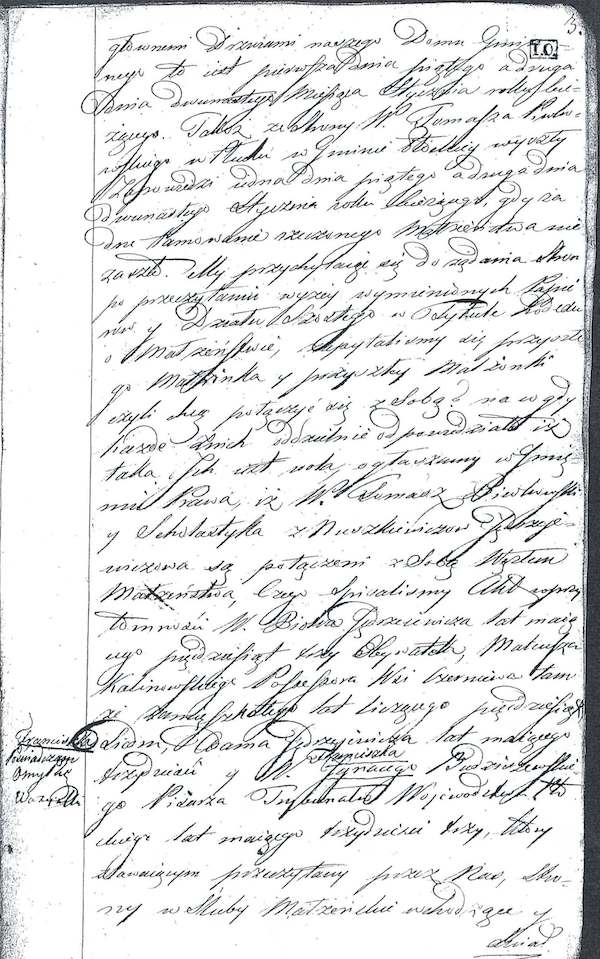 3.
T.O.
głownemi Drzwiami naszego Domu Gmin-
nego to iest pierwsza Dnia piątego a druga
Dnia dwunastego Miesiąca Stycznia roku bie-
żącego. Także ze strony W. Tomasza
w w Gminie wyszły
Zapowiedzi iedna Dnia piątego a druga dnia
dwunastego Stycznia roku bieżącego, gdy ża
dne tamowanie rzeczonego Małżeństwa nie
zaszło. My przychylaiąc się do żądania Stron
po przeczytaniu wyżey wymienionych Papie
row y Działu Szostego w Tytule Kodexu
o Małżeństwie, zapytaliśmy się przyszłe
go Małżonka y przyszłey Małżonki
czyli chcą połączyć się z Sobą na co gdy
każde z nich oddzielnie odpowiedziało iż
taka Ich iest wola, ogłaszamy w Imie-
niu Prawa, iż W. Tomasz
y Scholastyka z Nuszkiewiczow Jędrzeie-
wiczowa są połączeni z Sobą Węzłem
Małżeństwa, Czego Spisaliśmy Akt w przy
tomności W. Piotra Jędrzeiewicza lat maią
cego pięćdziesiąt trzy Obywatela, Mateusza
Kalinowskiego Possessora Wsi Czerniewa tam
że zamieszkałego lat liczącego pięćdziesiąt
Adama Jędrzejewicza lat maiącego
trzydzieści y W. Ignacego
Franciszka
go Pisarza Trybunału Wojewodztwa
ckiego lat maiącego trzydzieści trzy, Który
stawaiącym przeczytany przez Nas, Stro-
ny w Śluby Małżeńskie wchodzące y
Franciszka
Omyłkę